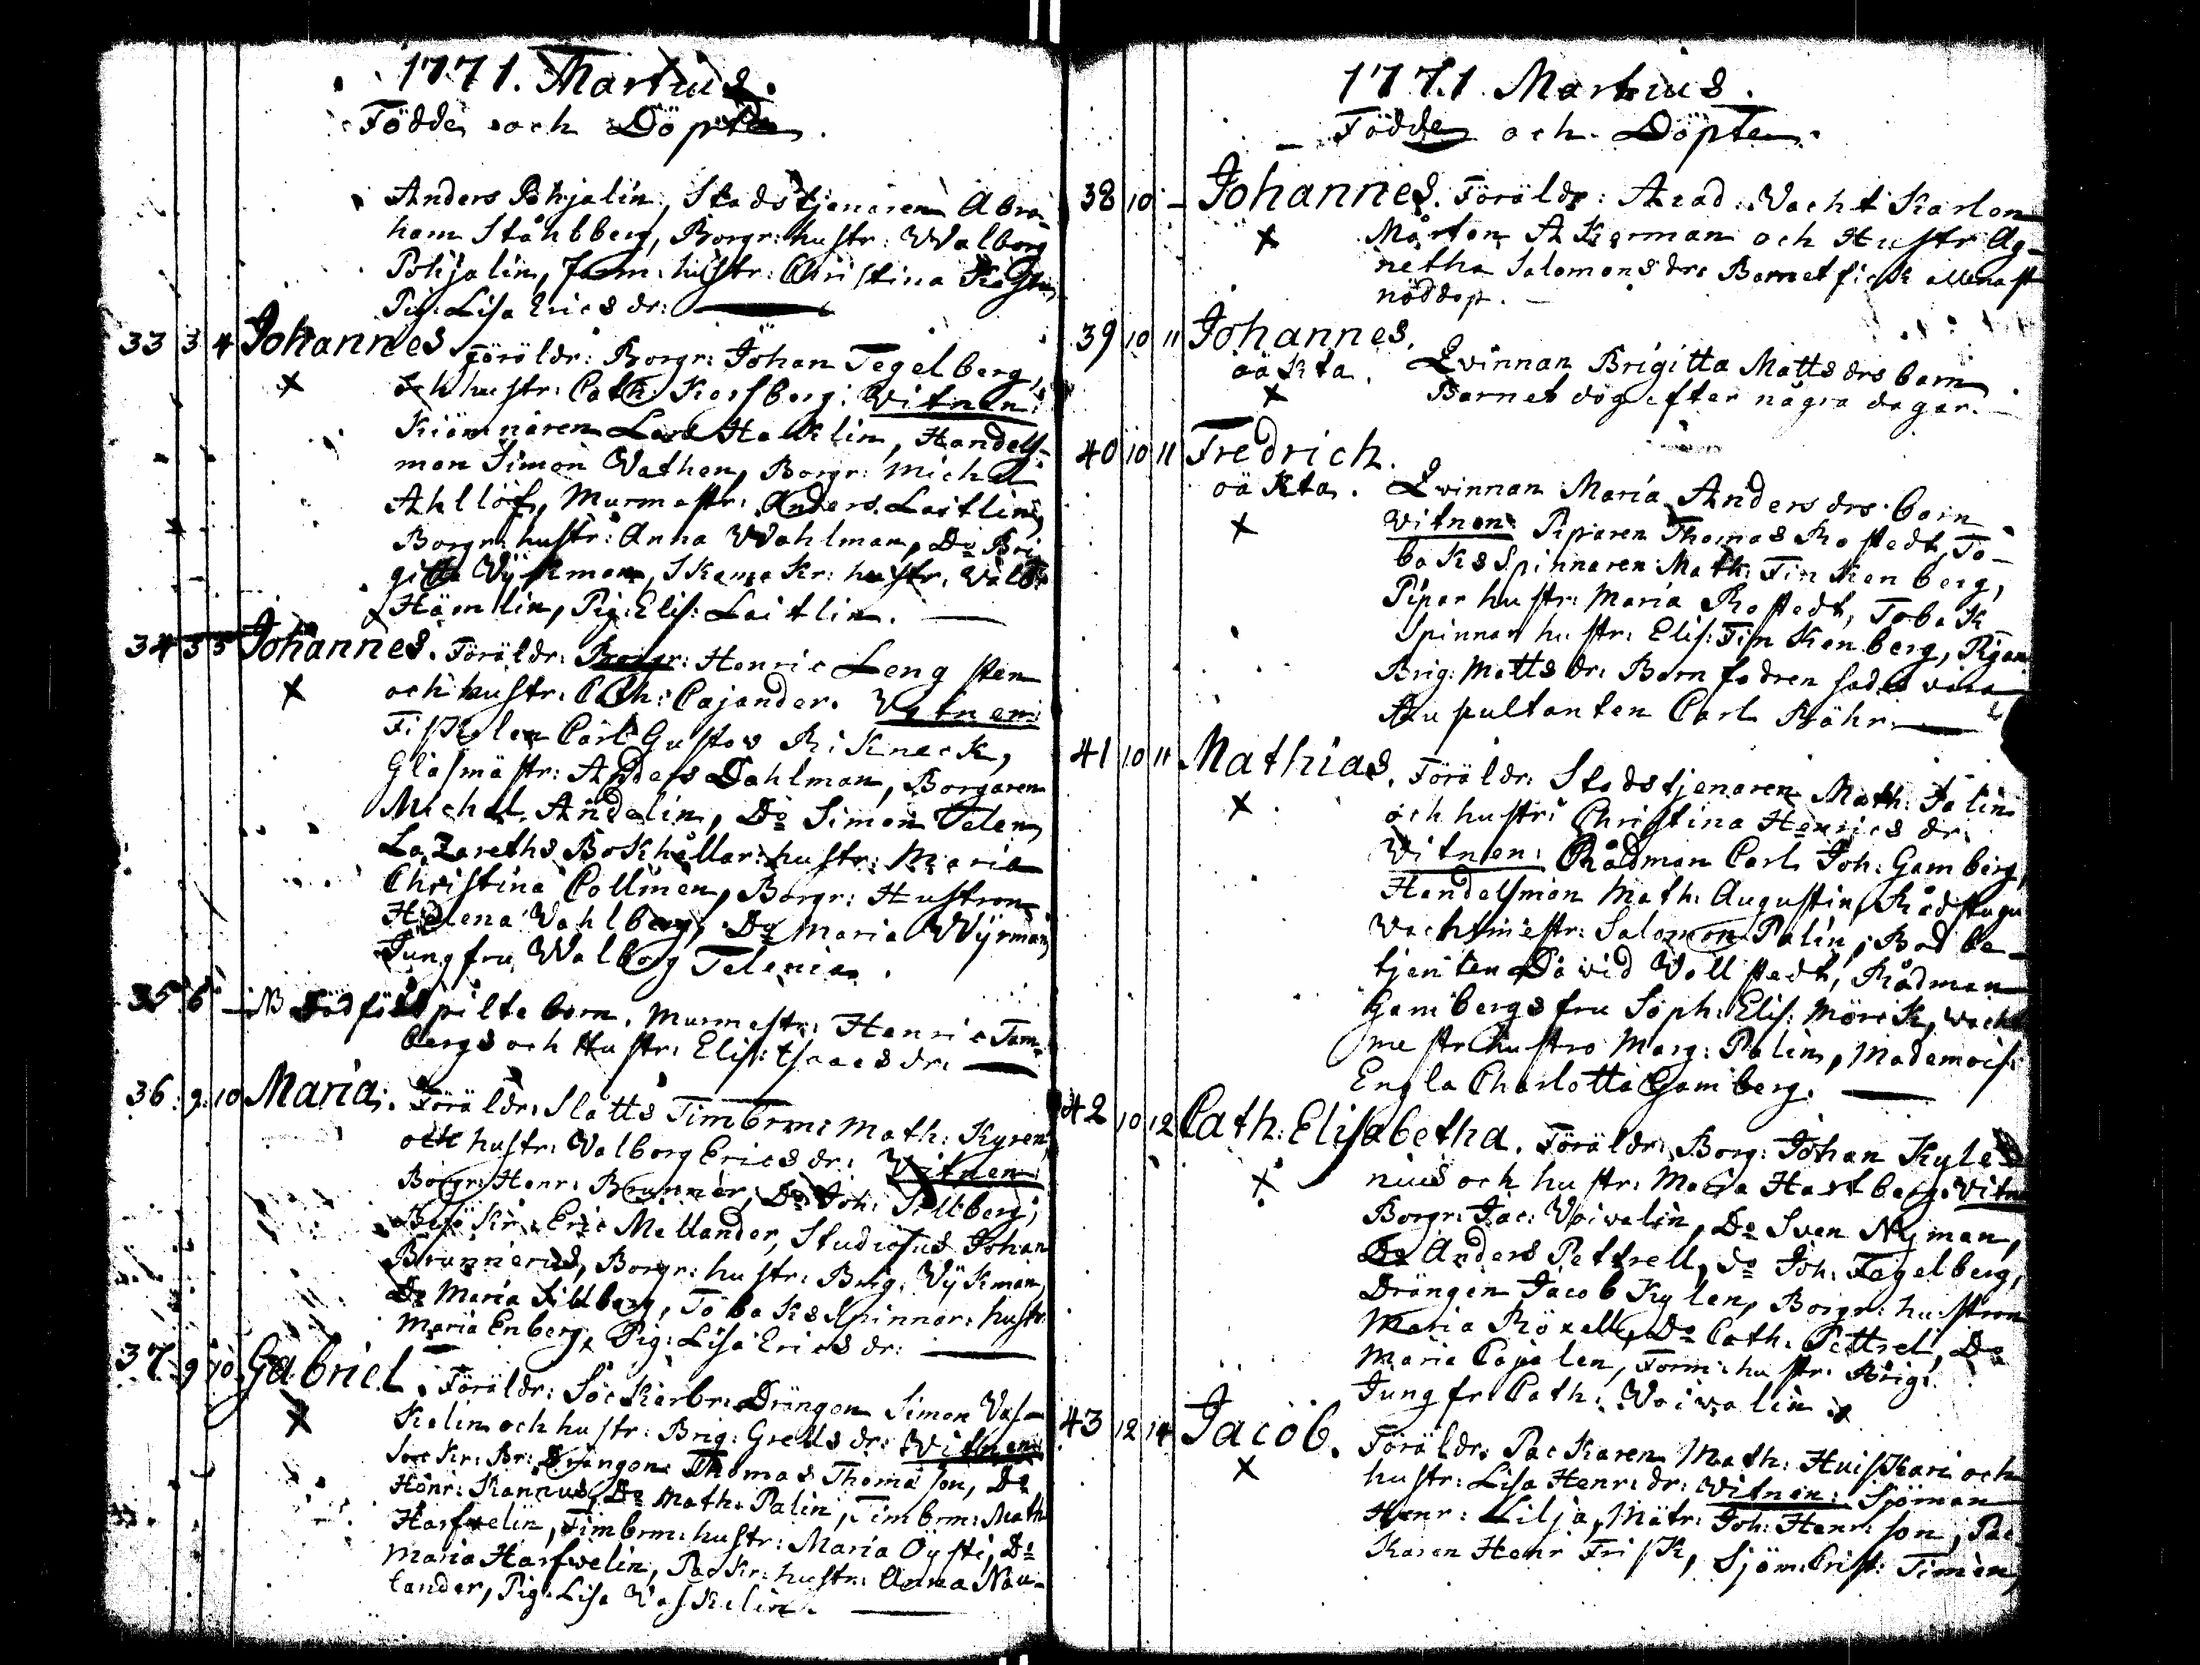 1771. Martius.
Födde och Döpte.
Anders Pohjalin, Stadstjenaren Abra-
ham Ståhlberg, Borgr: hustr: Walborg
Pohjalin, hustr: Christina
Pig: Lisa Erics dr:
33 3 4 Johannes Föräldr: Borgr: Johan Tegelberg,
och hustr: Cath: Korsberg: Vitnen:
Kiämnären Hacklin, Handels-
man Simon Wathen, Borgr: Michel
Ahllöf, Murmestr: Anders Laitlin,
Borgr: hustr: Anna Wahlman, Do Bri
gitta Wÿkman, Skomakr: hustr. Walb:
Hämlin, Pig: Elis: Laitlin.
34 3 5 Johannes. Föräldr: Borgr: Henric Leng sten
och hustr: Cath: Cajander. Vitnen:
Fiskalen Carl Gustav
Glasmästr: Anders Dahlman, Borgaren
Michel Andelin, Do Simon Telen,
Lazareths Bokhållar: hustr: Maria
Christina Collmen, Borgr: Hustron
Helena Wahlberg, Do Maria Wÿrman,
Jungfru Walborg Telenia.
35 6 - NB Dödföd piltebarn. Murmestr: Henric Tam-
bergs och Hustr: Elis: Isaacs dr:
36 9 10 Maria. Föräldr: Slotts Timbrm: Math: Kyren
och hustr: Walborg Erics dr: Vitnen:
Borgr: Henr: Brunner, Do Joh: Sillberg,
Eric Mellander, Studiosus Johan
Brunnerus, Borgr: hustr: Brig: Wÿkman,
Do Maria Sillberg, Tobaks Spinnar: hustr
Maria Enberg, Pig: Lisa Erics dr:
37 9 10 Gabriel. Föräldr: Sockerbr: Drängen Simon Vas-
kelin och hustr: Brig: Grells dr: Vitnen:
Sockr: Br: Drängen Thomas Thomason, Do
Henr: Kannus, Do Math: Palin, Timbrm: Math
Harfwelin, Timbrm: hustr: Maria Öÿsti, Do
Maria Harfwelin, Packr: hustr: Anna Nau-
lander, Pig: Lisa Vaskelin.
1771 Martius.
Födde och Döpte.
38 10 - Johannes. Föräldr: Acad: Vacht Karlen
Mårten Åkerman och Hustr Ag-
netha Salomons dr: Barnet fick allenast
nöddop.
39 10 11 Johannes.
oäkta. Qvinnan Brigitta Matts drs barn
Barnet dog efter några dagar.
40 10 11 Fredrich.
oäkta. Qvinnan Maria Anders drs barn
Vitnen: Piparen Thomas Rostedt, To-
baks Spinnaren Math: Finkenberg,
Pipar hustr: Maria Rostedt, Tobak
Spinnar hustr: Elis: Finkenberg, Pigan
Brig: Matts dr: Barnfadren sades vara
Auscultanten Carl Bähr.
41 10 11 Mathias. Föräldr: Stadstjenaren Math: Talin
och hustr: Christina Henrics dr:
Vitnen: Rådman Carl Joh: Gamberg,
Handelsman Math: Augustin, Rådstugu
Vachtmestr: Salomon Palin, Bod be-
tjenten David Wallstedt, Rådman
Gambergs fru Soph: Elis: Mörck, Wacht
mestr hustro Marg: Palin, Mademois:
Engla Charlotta Gamberg.
42 10 12 Cath: Elisabetha. Föräldr: Borg: Johan Kyle-
nius och hustr: Maria Hastberg: Vitn
Borgr: Jac: Woivalin, Do Sven Nyman,
Do Anders Pettrell, Do Joh: Tegelberg,
Drängen Jacob Kylen, Borgr: hustron
Maria Röxell, Do Cath: Pettrel, Do
Maria Capalen, Form: hustr: Brig:
Jungfr: Cath: Woivalin
43 12 14 Jacob. Föräldr: Packaren Math: Huiskari och
hustr: Lisa Henr: dr: Vitnen: Sjöman
Henr: Lilja, Mätr: Joh: Henr: son, Pac
karen Henr Frisk, Sjöm: Crist: Timen,